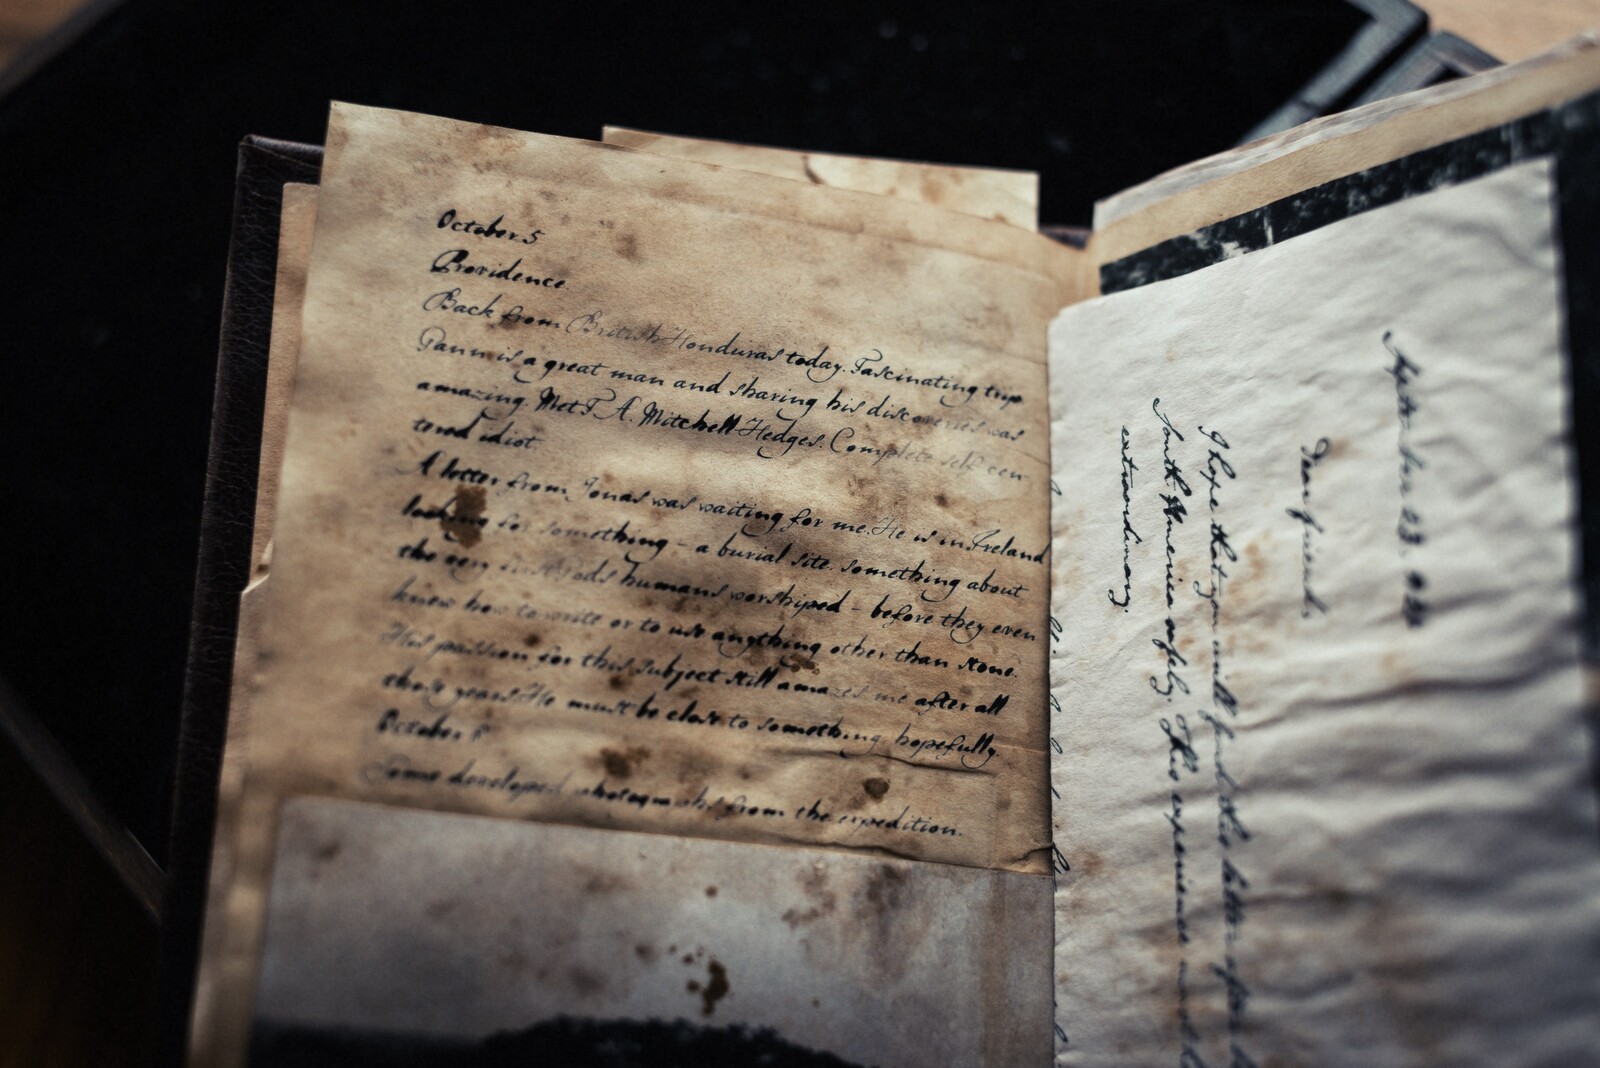 October 5
Providence
Back from British Honduras today. Fascinating trip
Gann is a great man and sharing his discoveries was
amazing. Met F. A. Mitchell-Hedges. Complete self cen-
tered idiot.
A letter from Jonas was waiting for me. He is in Ireland
looking for something - a burial site. something about
the very first gods humans worshiped - before they even
knew how to write or to use anything other than stone.
His passion for this subject still amazes me after all
those years. He must be close to something, hopefully.
October
Some developed photographs from the expedition.
September 23.
Dear friend,
I hope that you will find this letter after
South America safely. This experience
extraordinary.